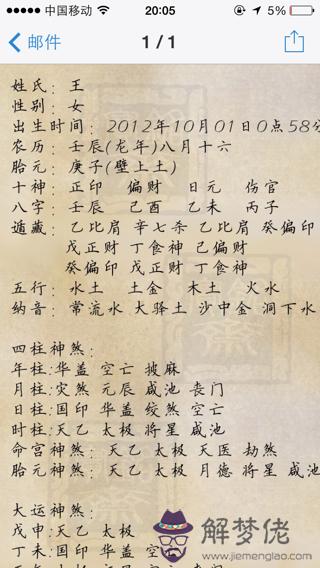 中国移动 20:05 5%
邮件 1 / 1
姓氏：王
性别：女
出生时间：2012年10月01日0点58分
农历：壬辰(龙年)八月十六
胎元：庚子(壁上土)
十神：正印 偏财 日元 伤官
八字：壬辰 己酉 乙未 丙子
遁藏：乙比肩 辛七杀 乙比肩 癸偏印
戊正财 丁食神 己偏财
癸偏印 戊正财 丁食神
五行：水土 土金 木土 火水
纳音：常流水 大驿土 沙中金 洞下水
四柱神煞：
年柱:华盖 空亡 披麻
月柱:灾煞 元辰 咸池 丧门
日柱:国印 华盖 绞煞 空亡
时柱:天乙 太极 将星 咸池
命宫神煞：天乙 太极 天医 劫煞
胎元神煞：天乙 太极 月德 将星 咸池
大运神煞：
戊申:天乙 太极 太极
丁未:国印 华盖 空亡
解梦佬
www.jiemenglao.com